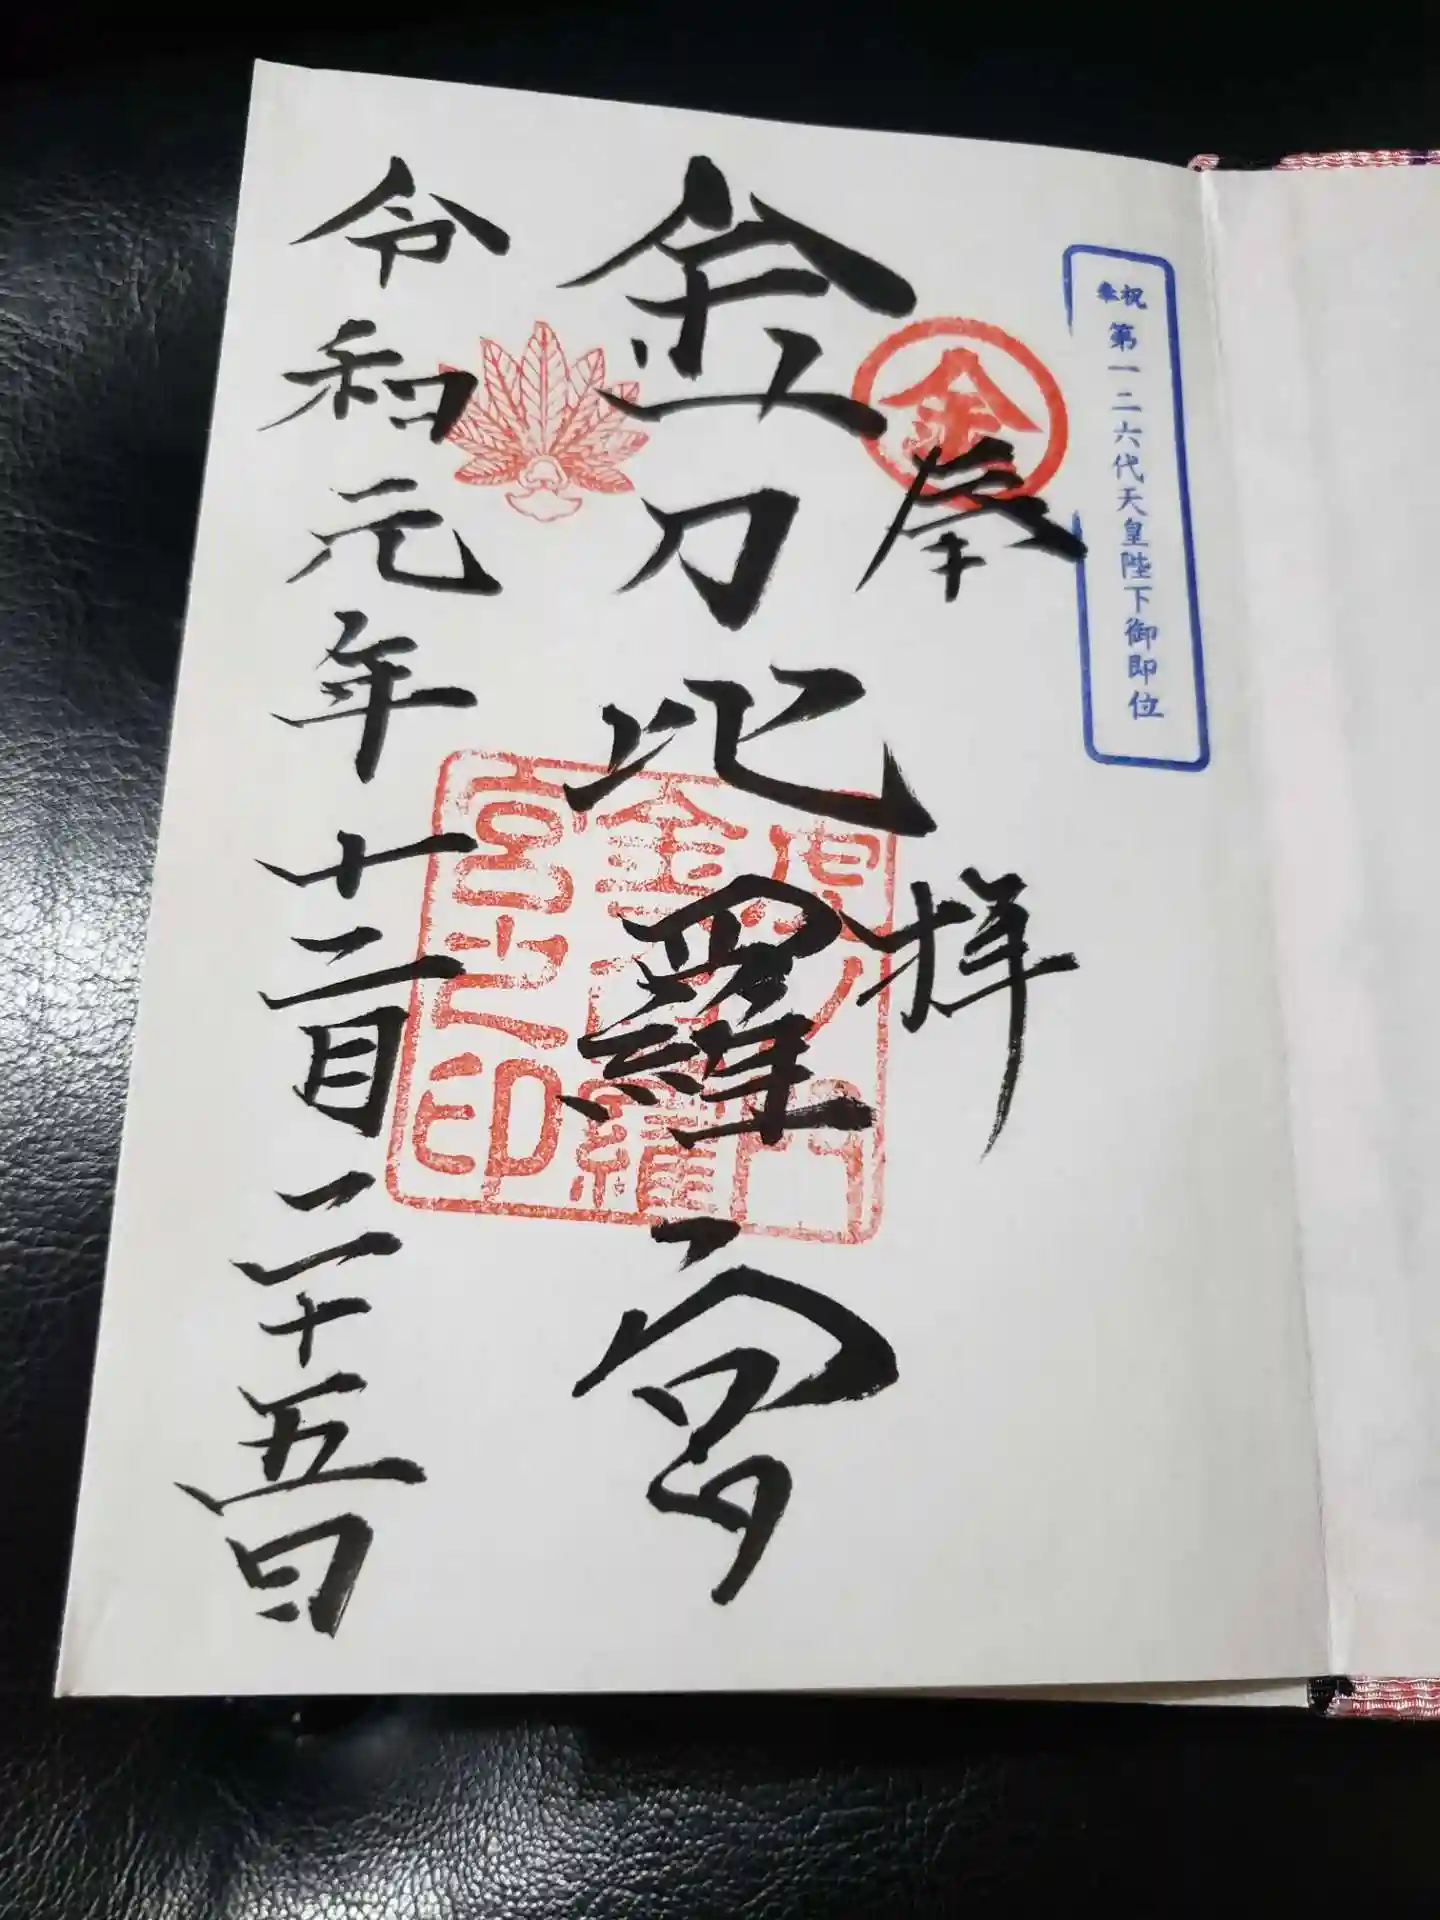 奉祝
第一二六代天皇陛下御即位
金
奉拝
金刀比羅宮
虎ノ門
金刀比羅
宮之印
令和元年十二月二十五日